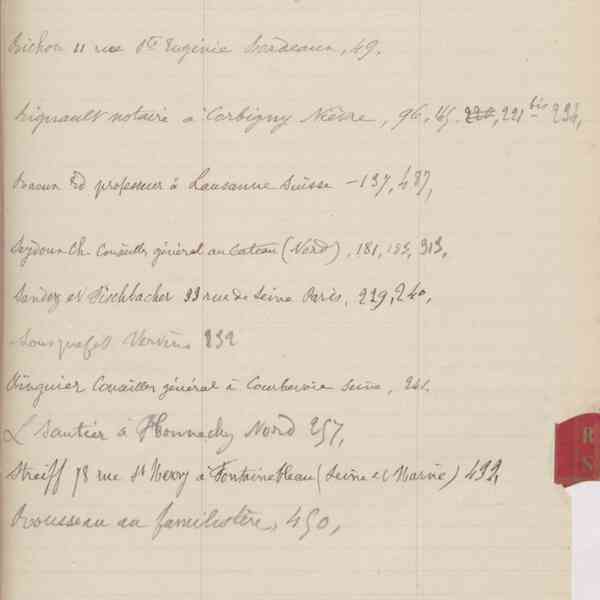 Richon 11 rue Ste Eugénie Bordeaux, 49.
notaire à Corbigny Nièvre, 96, 221 bis 234,
Raoux Ed professeur à Lausanne Suisse - 137, 487,
Seydoux Ch. Conseiller général au Cateau (Nord), 181, 183, 313,
Sandoz et Fischbacher 33 rue de Seine Paris, 229, 240,
Sous préfet Vervins 232
Ringuier Conseiller général à Courbevoie Seine,
L Sautier à Honnechy Nord 257,
Streiff 78 rue St Merry à Fontainebleau (Seine et Marne) 492,
Rousseau au familistère, 450,
R
S